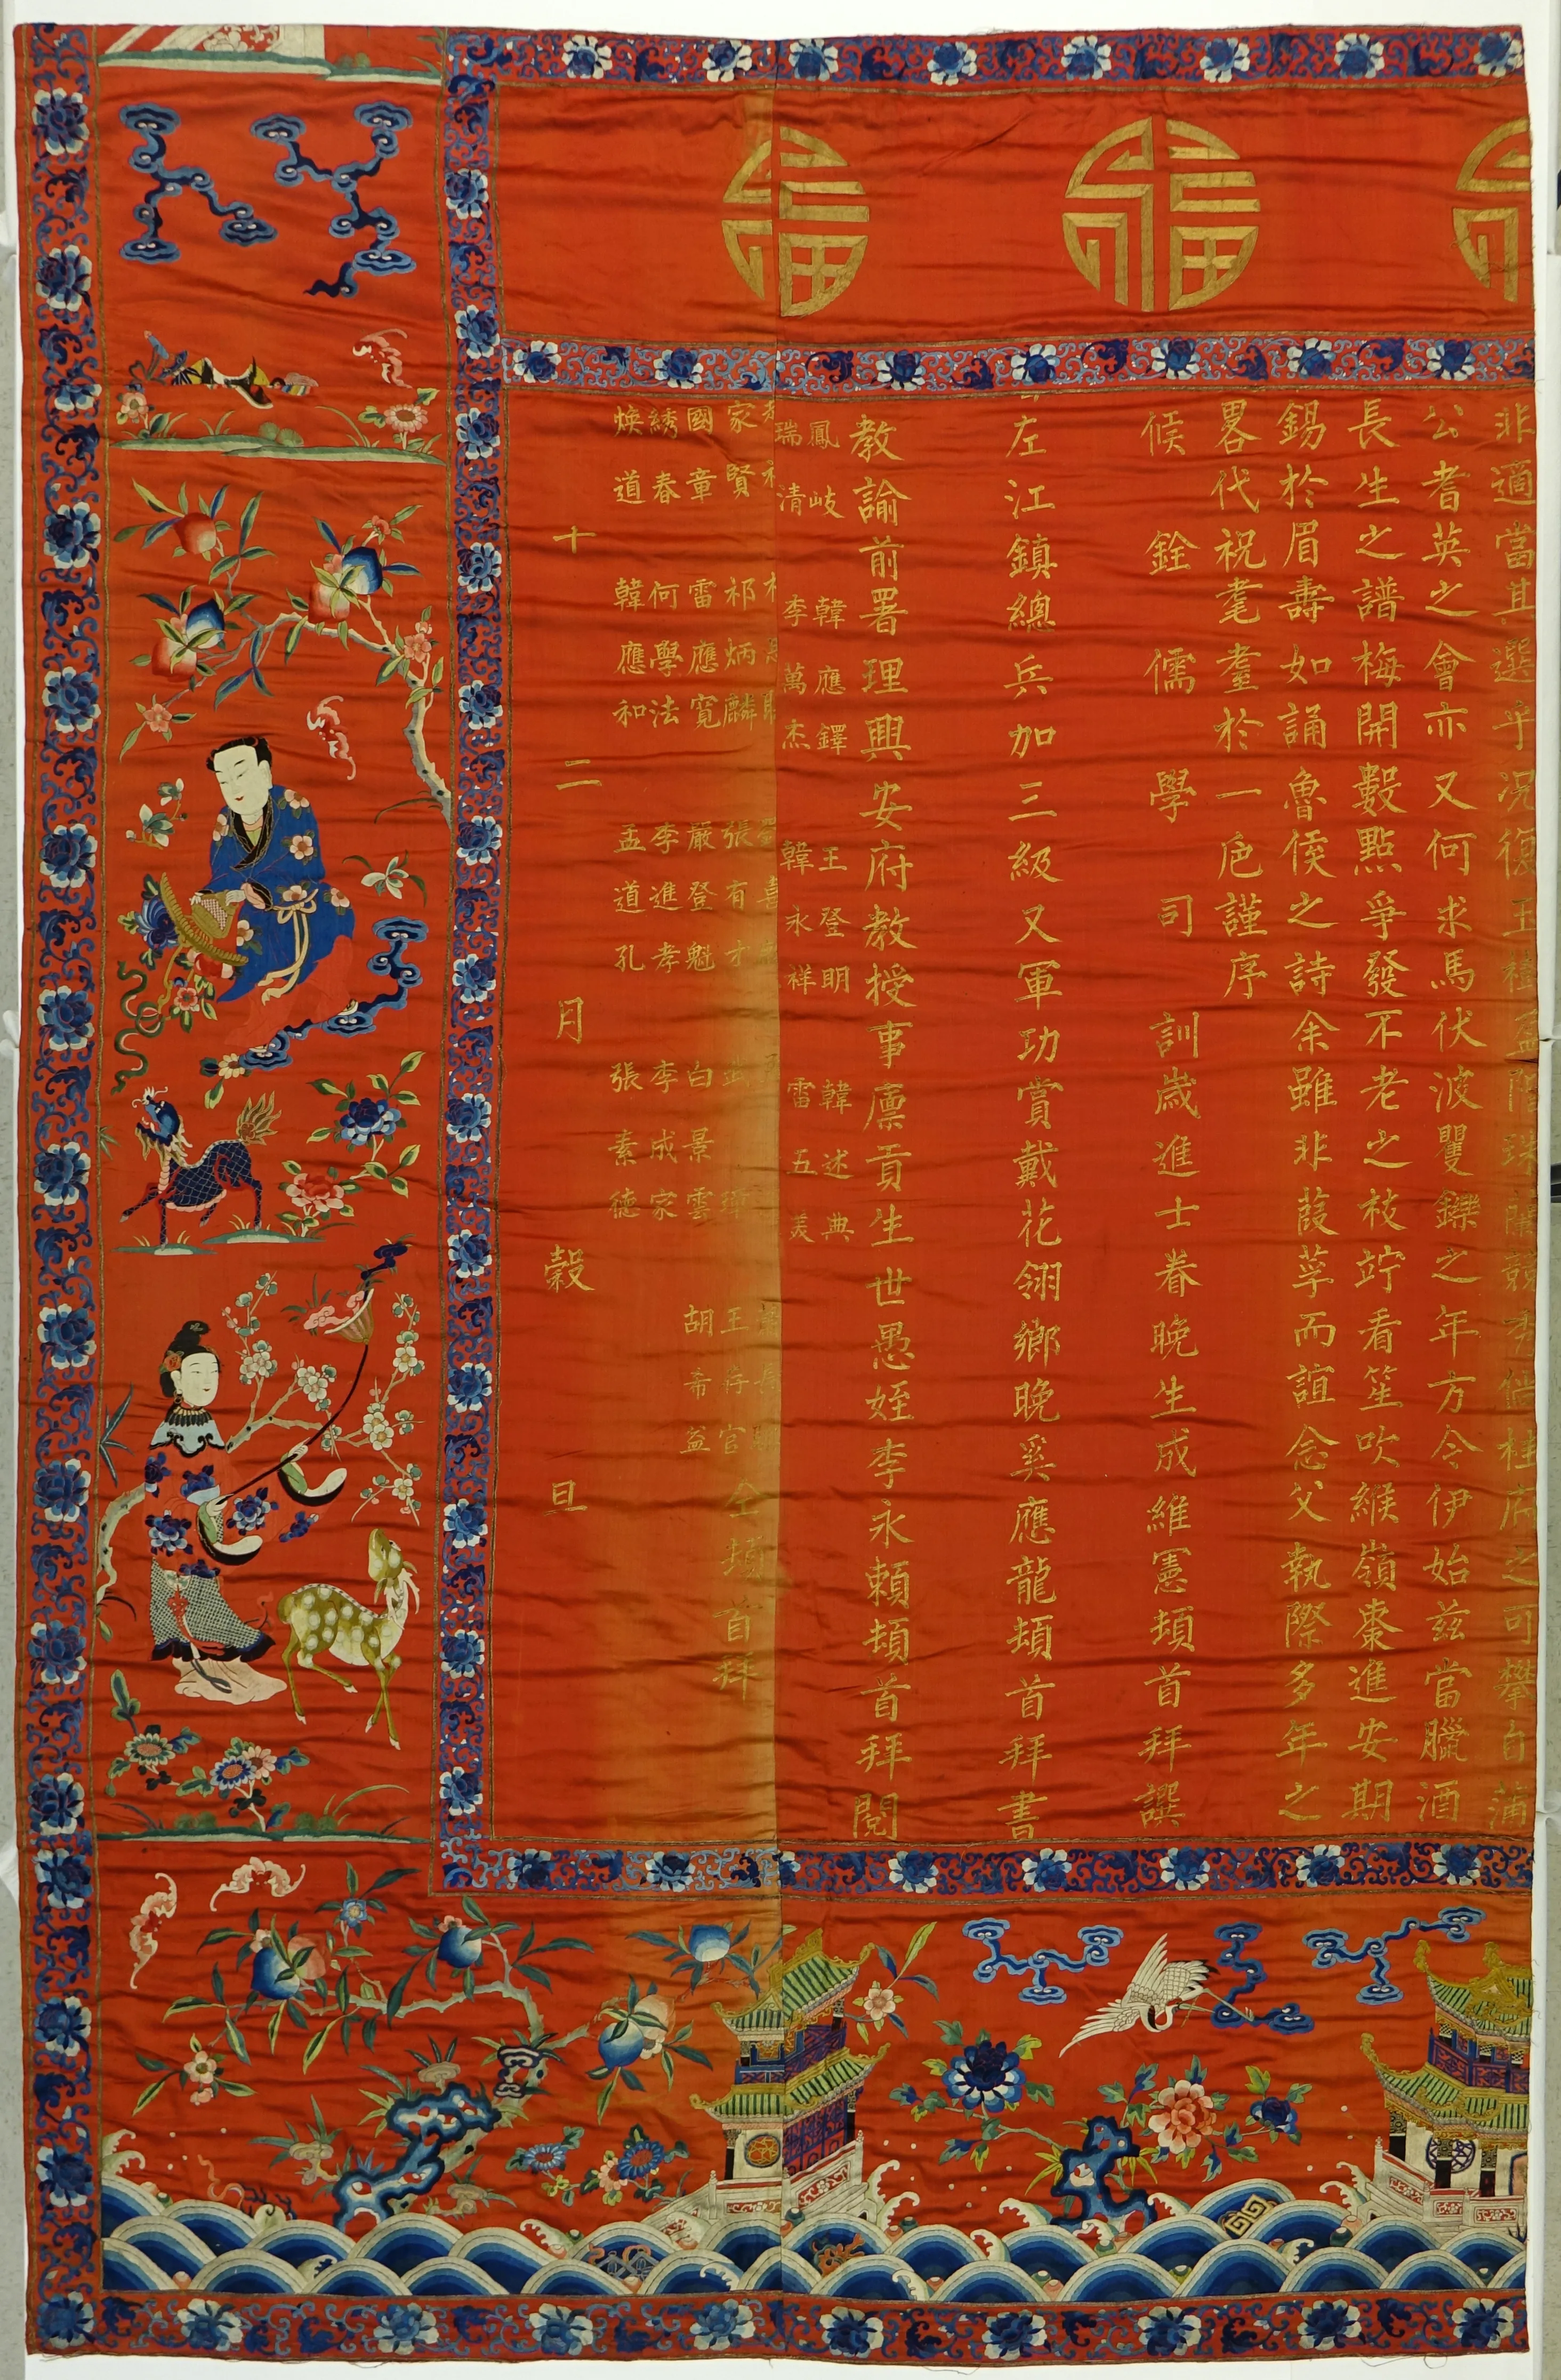 福 福
非適當其選乎況復玉樹盈階珠蘭競秀
公耆英之會亦又何求馬伏波矍鑠之年方今伊始茲當臘酒
長生之譜梅開數點爭發不老之枝竚看笙吹緱嶺棗進安期
錫於眉壽如誦魯侯之詩余雖非葭莩而誼念父執際多年之
畧代祝耄耋於一巵謹序
候銓儒學司訓歲進士眷晚生成維憲頓首拜譔
左江鎮總兵加三級又軍功賞戴花翎鄉晚奚應龍頓首拜書
教諭前署理興安府教授事廩貢生世愚姪李永賴頓首拜閱
鳳岐 韓應鐸 王登明 韓述典
瑞清 李萬杰 韓永祥 雷五美
家賢 祁炳麟 張有才 王存官
國童 雷應寬 嚴登魁 白景雲 胡希益
綉春 何學法 李進孝 李成家
煥道 韓應和 孟道孔 張素德
仝頓首拜
十二月穀旦